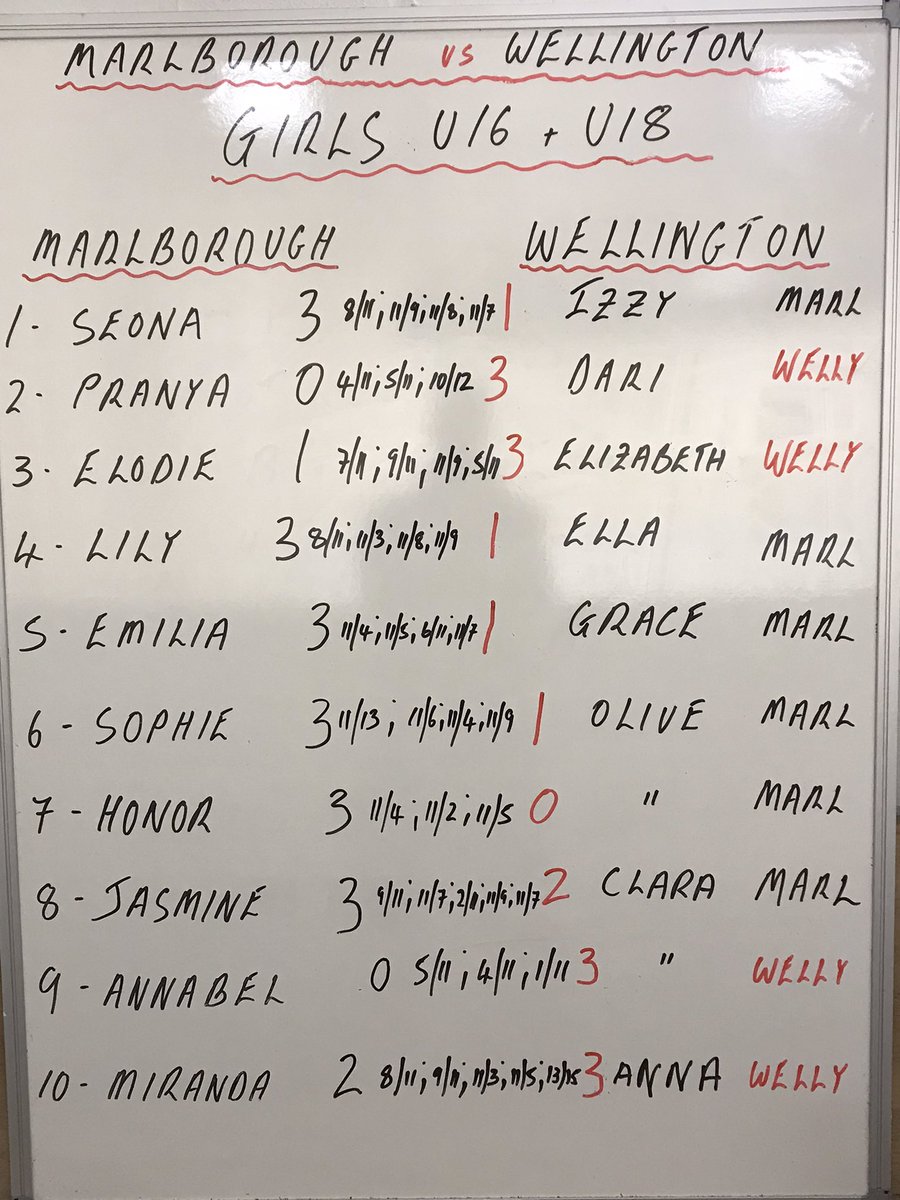 MARLBOROUGH vs WELLINGTON
GIRLS U/6 + U/8
MARLBOROUGH WELLINGTON
1- SEONA 3 8/11; 11/9; 11/8; 11/7 1 IZZY MARL
2- PRANYA 0 4/11; 5/11; 10/12 3 DARI WELLY
3- ELODIE 1 7/11; 9/11; 11/9; 5/11 3 ELIZABETH WELLY
4- LILY 3 8/11; 11/3; 11/8; 11/9 1 ELLA MARL
5- EMILIA 3 11/4; 11/5; 6/11; 11/7 1 GRACE MARL
6- SOPHIE 3 11/13; 11/6; 11/4; 11/9 1 OLIVE MARL
7- HONOR 3 11/4; 11/2; 11/5 0 " MARL
8- JASMINE 3 9/11; 11/7; 2/11; 11/9; 11/7 2 CLARA MARL
9- ANNABEL 0 5/11; 4/11; 1/11 3 " WELLY
10- MIRANDA 2 8/11; 9/11; 11/3; 11/5; 13/15 3 ANNA WELLY